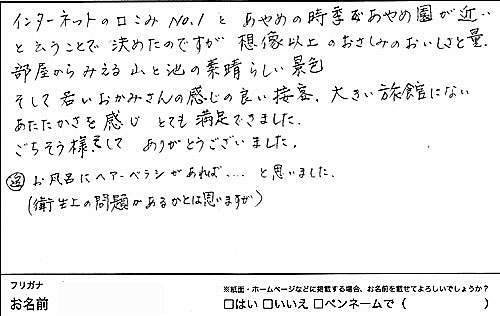 インターネットの口こみNo.1と あやめの時季であやめ園が近い
と云うことで 決めたのですが 想像以上のおさしみのおいしさと量.
部屋からみえる山と池の素晴らしい景色
そして若いおかみさんの感じの良い接客、大きい旅館にない
あたたかさを感じ とても満足できました.
ごちそう様でして ありがとうございました.
追 お風呂にヘアーブラシがあれば.... と思いました.
(衛生上の問題があるかとは思いますが)
フリガナ
お名前
※紙面・ホームページなどに掲載する場合、お名前を載せてよろしいでしょうか?
□はい □いいえ □ペンネームで ( )